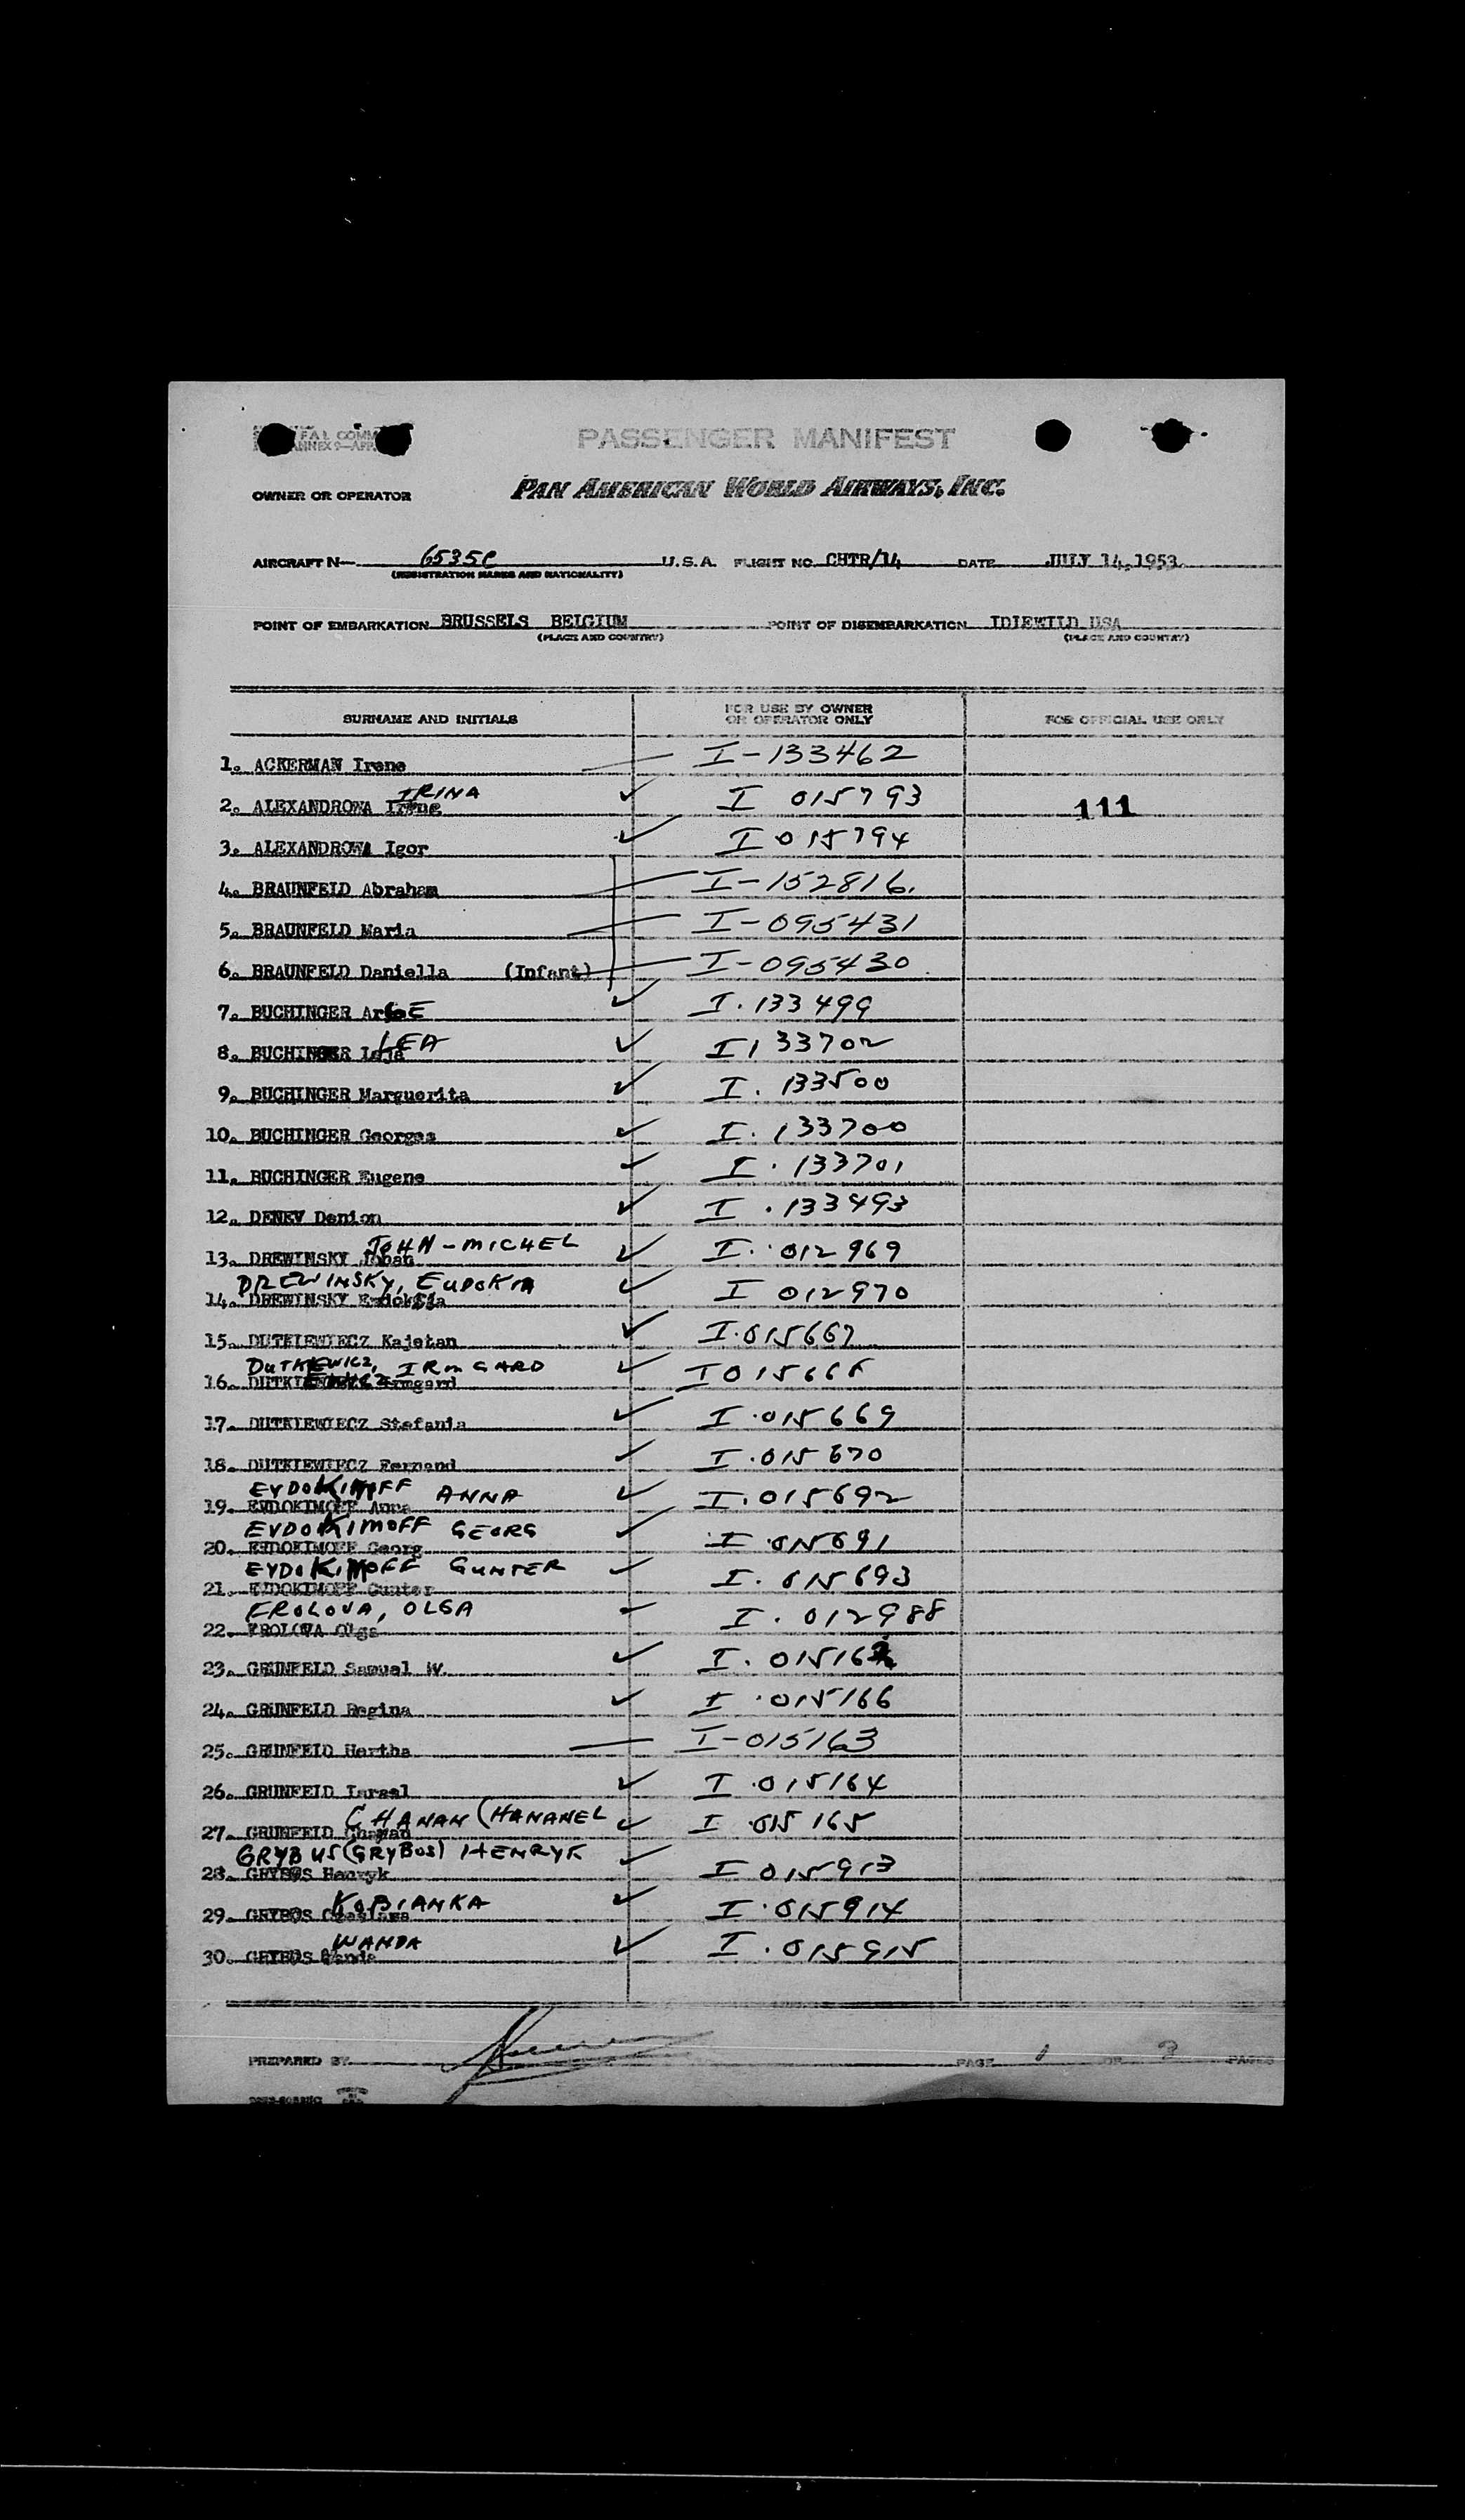 FAL COMM
ANNEX 9—APP
PASSENGER MANIFEST
OWNER OR OPERATOR PAN AMERICAN WORLD AIRWAYS, INC.
AIRCRAFT N— 6535C U.S.A. FLIGHT NO. CHTR/14 DATE JULY 14, 1953
(REGISTRATION MARKS AND NATIONALITY)
POINT OF EMBARKATION BRUSSELS BELGIUM POINT OF DISEMBARKATION IDLEWILD USA
(PLACE AND COUNTRY) (PLACE AND COUNTRY)
SURNAME AND INITIALS FOR USE BY OWNER OR OPERATOR ONLY FOR OFFICIAL USE ONLY
1. ACKERMAN Irene I-133462
IRINA
2. ALEXANDROWA I 015793 111
3. ALEXANDROWA Igor I 015794
4. BRAUNFELD Abraham I-152816.
5. BRAUNFELD Maria I-095431
6. BRAUNFELD Daniella (Infant) I-095430
7. BUCHINGER I. 133499
LEA
8. BUCHINGER I 133702
9. BUCHINGER Marguerita I. 133500
10. BUCHINGER Georges I. 133700
11. BUCHINGER Eugene I. 133701
12. DENEV Denion I. 133493
JOHN-MICHEL
13. DREWINSKY Johan I. 012969
DREWINSKY, EUDOKIA
14. DREWINSKY I 012970
15. DUTKIEWIECZ Kajetan I. 015667
DUTKIEWICZ, IRMGARD
16. Irmgard I 015668
17. DUTKIEWIECZ Stefania I. 015669
18. DUTKIEWIECZ Fernand I. 015670
EVDOKIMOFF ANNA
19. EVDOKIMOFF Anna I. 015692
EVDOKIMOFF GEORG
20. EVDOKIMOFF Georg I 015691
EVDOKIMOFF GUNTER
21. EVDOKIMOFF Gunter I. 015693
FROLOVA, OLGA
22. FROLOVA Olga I. 012988
23. GRUNFELD Samuel W. I. 015162
24. GRUNFELD Regina I. 015166
25. GRUNFELD Hertha I-015163
26. GRUNFELD Israel I. 015164
CHANAN (HANANEL
27. GRUNFELD I. 015165
GRYBUS (GRYBOS) HENRYK
28. GRYBOS Henryk I 015913
KOBIANKA
29. GRYBOS I. 015914
WANDA
30. GRYBOS Wanda I. 015915
PREPARED BY PAGE 1 OF 3 PAGES